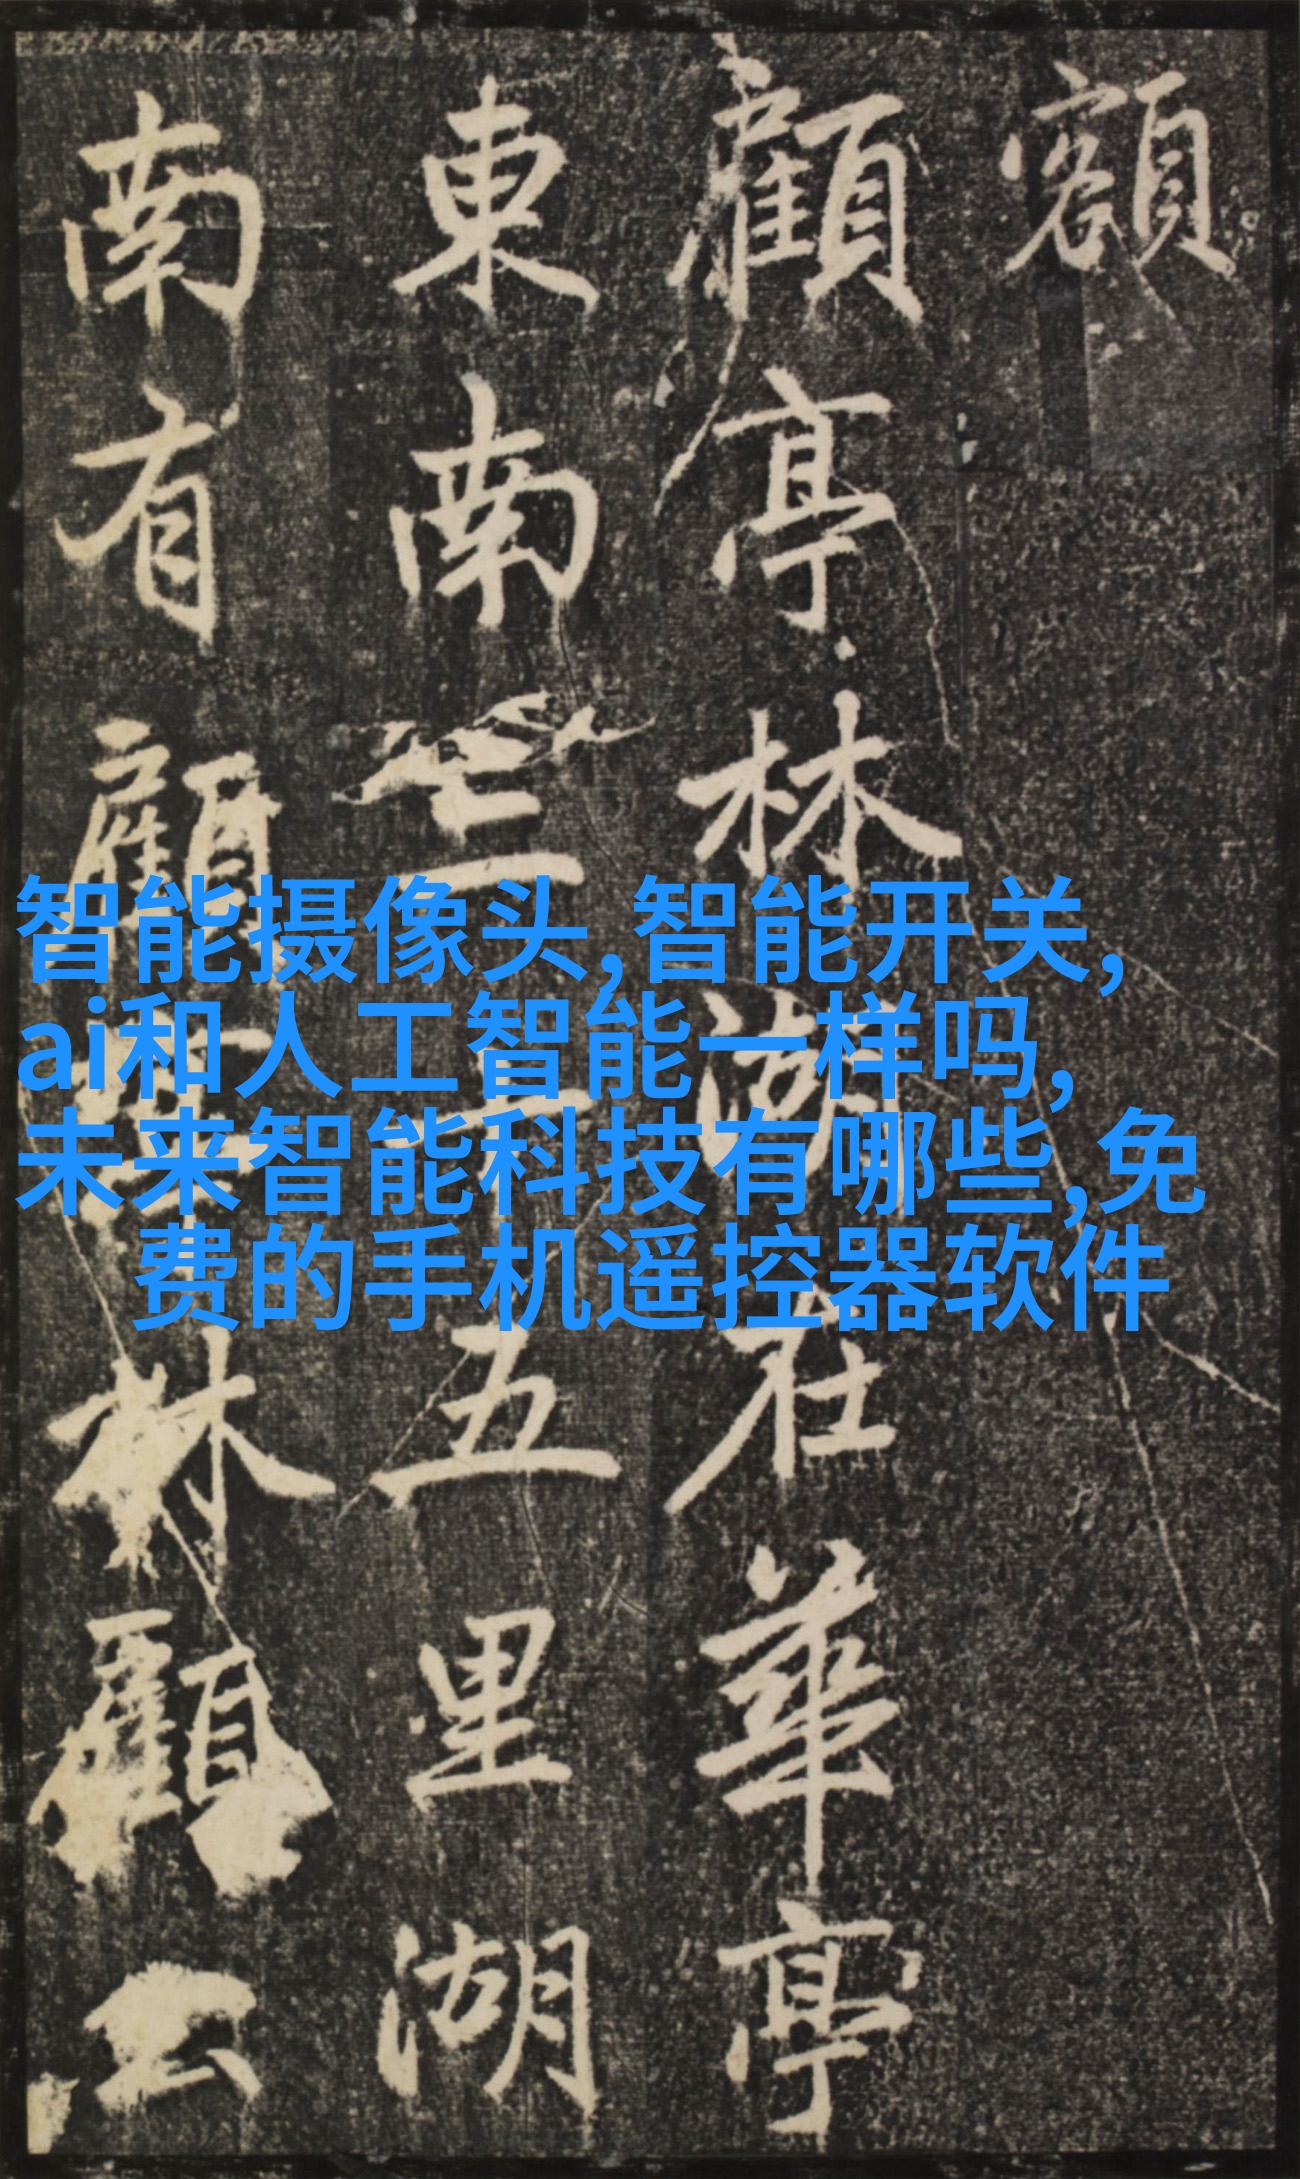 額
顧亭林湖在華亭
東南三十五里湖
南有顧野林顧公
智能摄像头,智能开关,
ai和人工智能一样吗,
未来智能科技有哪些,免
费的手机遥控器软件